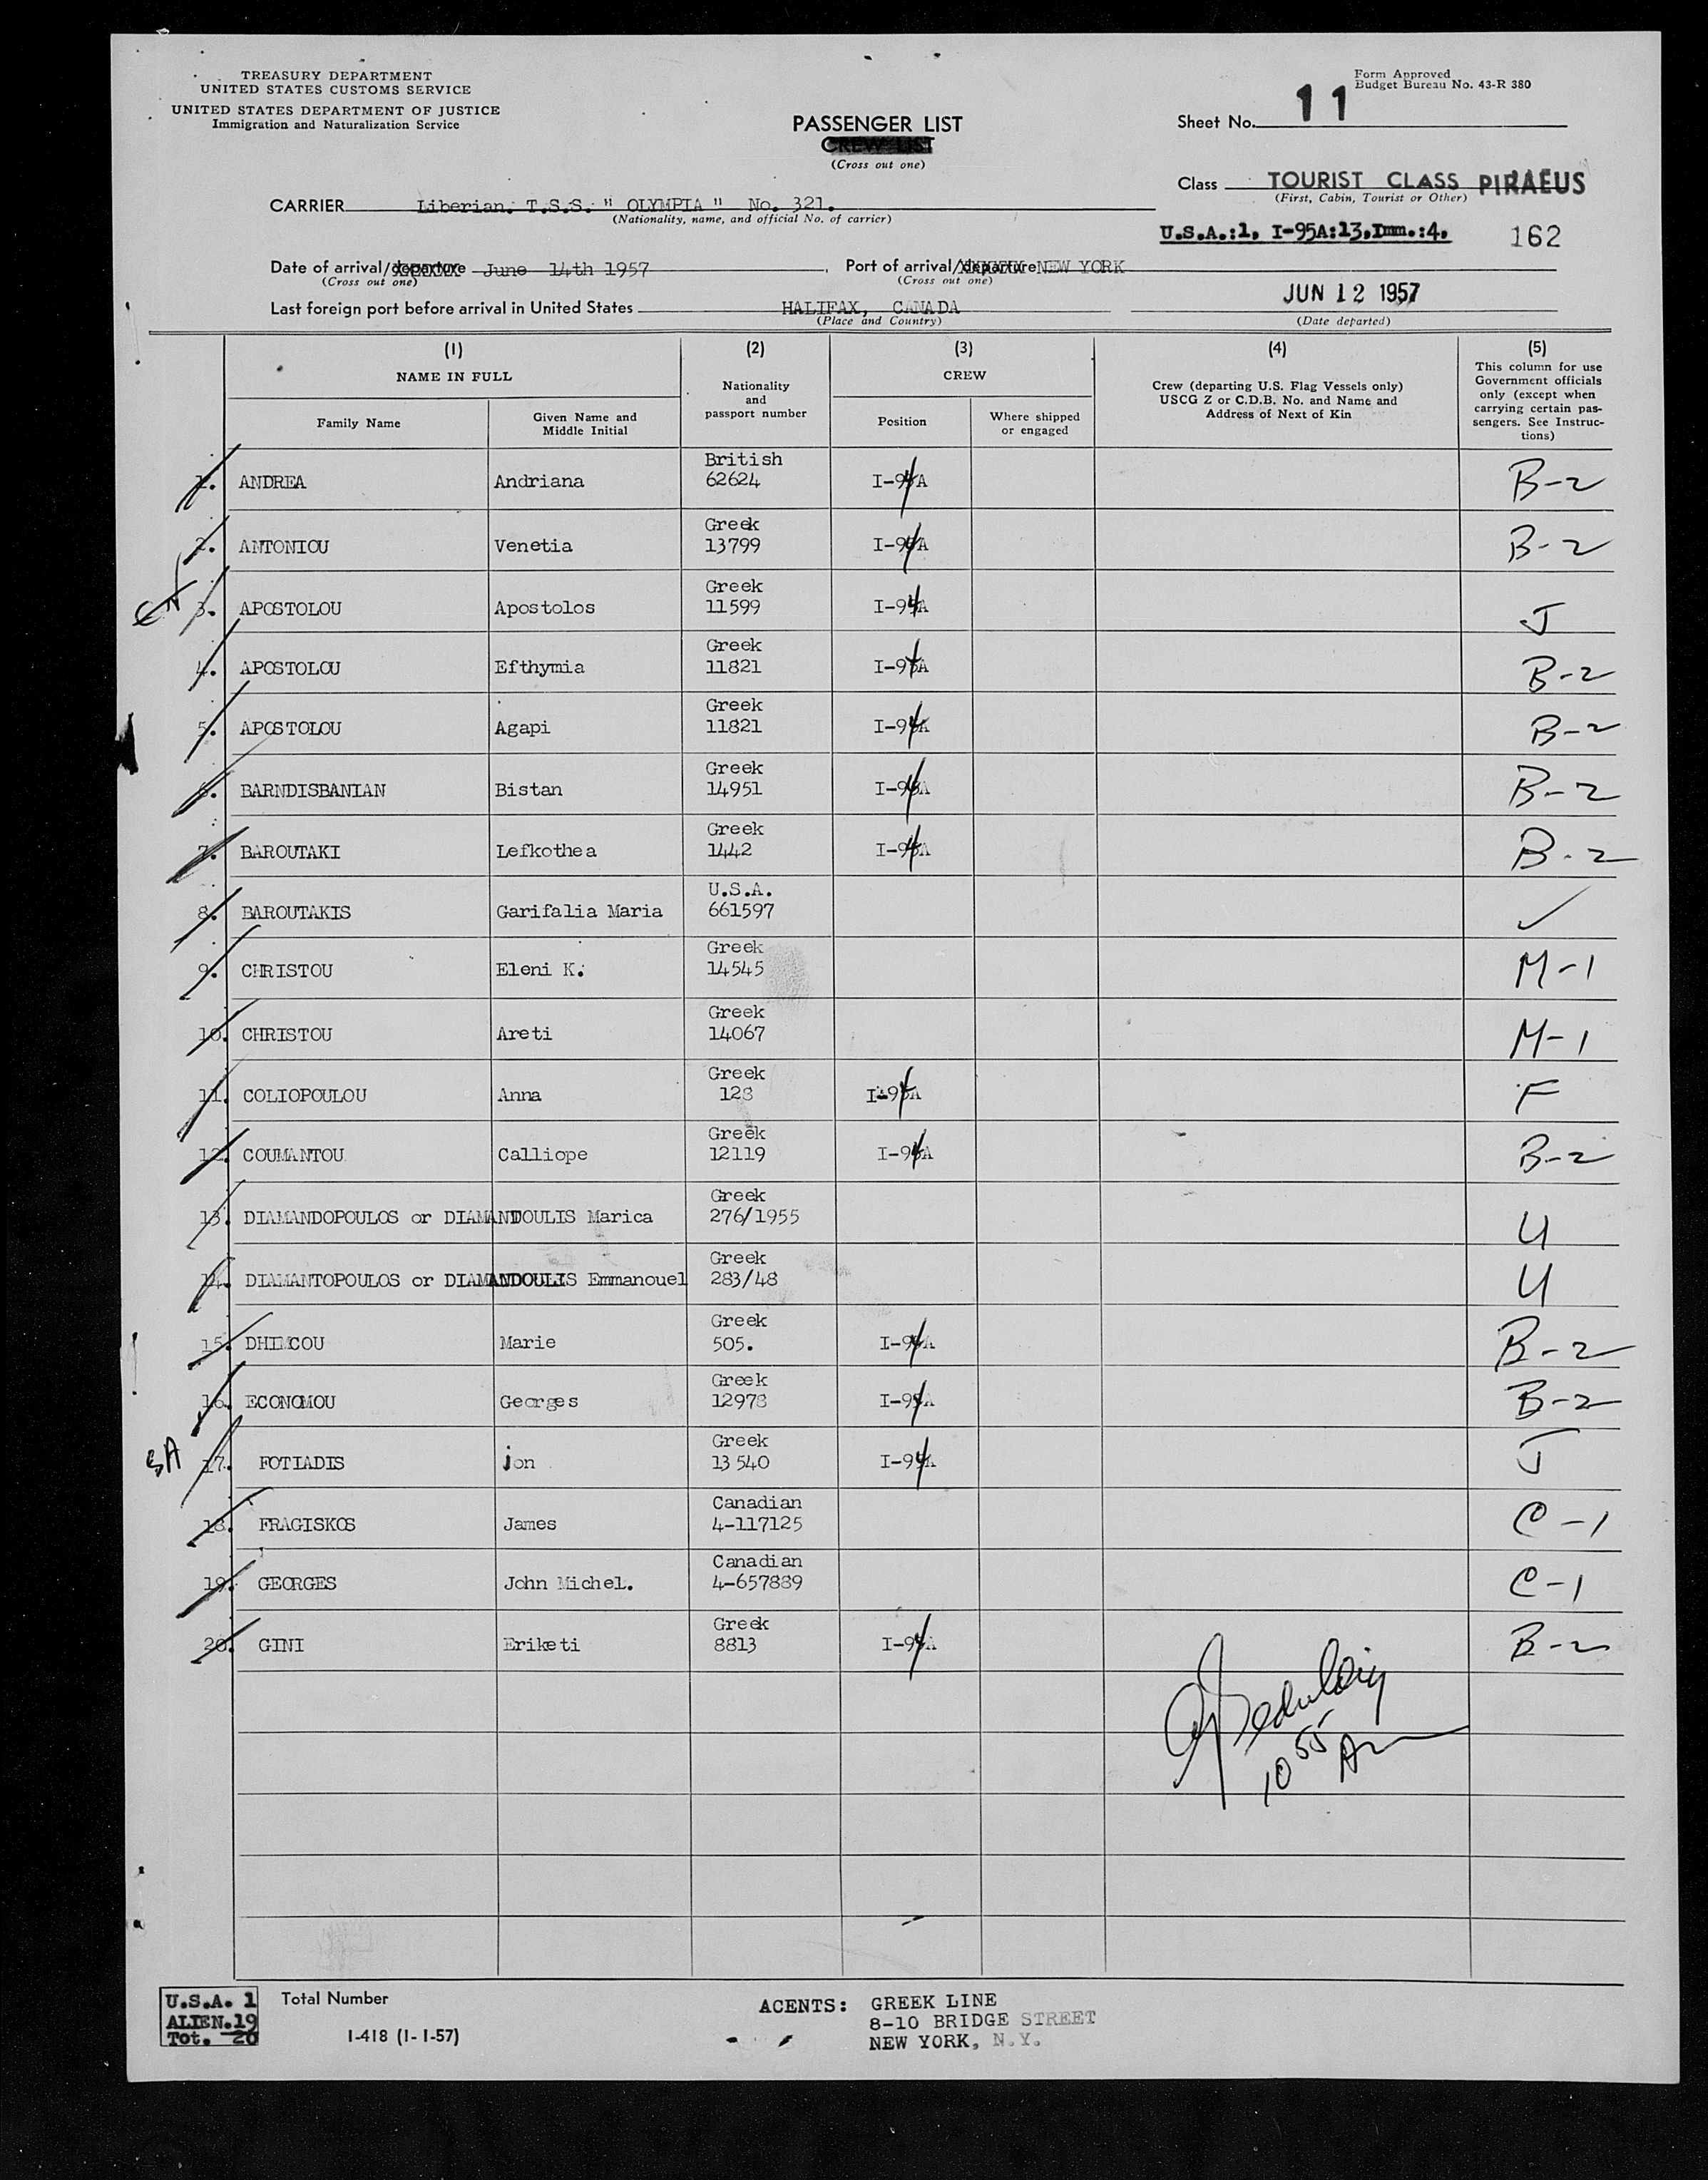 TREASURY DEPARTMENT
UNITED STATES CUSTOMS SERVICE
UNITED STATES DEPARTMENT OF JUSTICE
Immigration and Naturalization Service
Form Approved
Budget Bureau No. 43-R 380
PASSENGER LIST
CREW LIST
(Cross out one)
Sheet No. 11
Class TOURIST CLASS PIRAEUS
(First, Cabin, Tourist or Other)
CARRIER Liberian. T.S.S. " OLYMPIA " No. 321.
(Nationality, name, and official No. of carrier)
U.S.A.:1, I-95A:13,Imm.:4, 162
Date of arrival/departure June 14th 1957, Port of arrival/departure NEW YORK
(Cross out one) (Cross out one)
Last foreign port before arrival in United States HALIFAX, CANADA JUN 12 1957
(Place and Country) (Date departed)
(1) (2) (3) (4) (5)
NAME IN FULL
Family Name
Given Name and Middle Initial
Nationality and passport number
CREW
Position
Where shipped or engaged
Crew (departing U.S. Flag Vessels only)
USCG Z or C.D.B. No. and Name and
Address of Next of Kin
This column for use
Government officials
only (except when
carrying certain pas-
sengers. See Instruc-
tions)
British
1. ANDREA Andriana 62624 I-94A B-2
Greek
2. ANTONIOU Venetia 13799 I-94A B-2
Greek
3. APOSTOLOU Apostolos 11599 I-94A J
Greek
4. APOSTOLOU Efthymia 11821 I-94A B-2
Greek
5. APOSTOLOU Agapi 11821 I-94A B-2
Greek
6. BARNDISBANIAN Bistan 14951 I-94A B-2
Greek
7. BAROUTAKI Lefkothea 1442 I-94A B-2
U.S.A.
8. BAROUTAKIS Garifalia Maria 661597 ✓
Greek
9. CHRISTOU Eleni K. 14545 M-1
Greek
10. CHRISTOU Areti 14067 M-1
Greek
11. COLIOPOULOU Anna 128 I-94A F
Greek
12. COUMANTOU Calliope 12119 I-94A B-2
Greek
13. DIAMANDOPOULOS or DIAMANDOULIS Marica 276/1955 U
Greek
14. DIAMANTOPOULOS or DIAMANDOULIS Emmanouel 283/48 U
Greek
15. DHIMCOU Marie 505. I-94A B-2
Greek
16. ECONOMOU Georges 12978 I-94A B-2
Greek
SA 17. FOTIADIS jon 13540 I-94A J
Canadian
18. FRAGISKOS James 4-117125 C-1
Canadian
19. GEORGES John Michel. 4-657889 C-1
Greek
20. GINI Eriketi 8813 I-94A B-2
10 55 Am
U.S.A. 1
ALIEN.19
Tot. 20
Total Number
I-418 (1-1-57)
ACENTS: GREEK LINE
8-10 BRIDGE STREET
NEW YORK, N.Y.